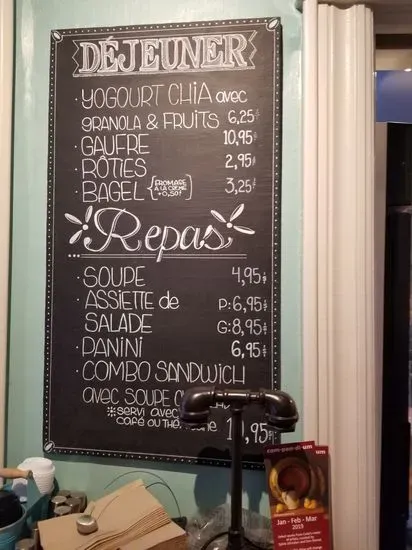 DÉJEUNER
· YOGOURT CHIA avec
GRANOLA & FRUITS 6,25$
· GAUFRE 10,95$
· RÔTIES 2,95$
· BAGEL {FROMAGE À LA CRÈME +0,50$} 3,25$
Repas
· SOUPE 4,95$
· ASSIETTE de P: 6,95$
SALADE G: 8,95$
· PANINI 6,95$
· COMBO SANDWICH
avec SOUPE
*SERVI avec
CAFÉ OU THÉ
com·pen·di·um
um
Jan - Feb - Mar
2019